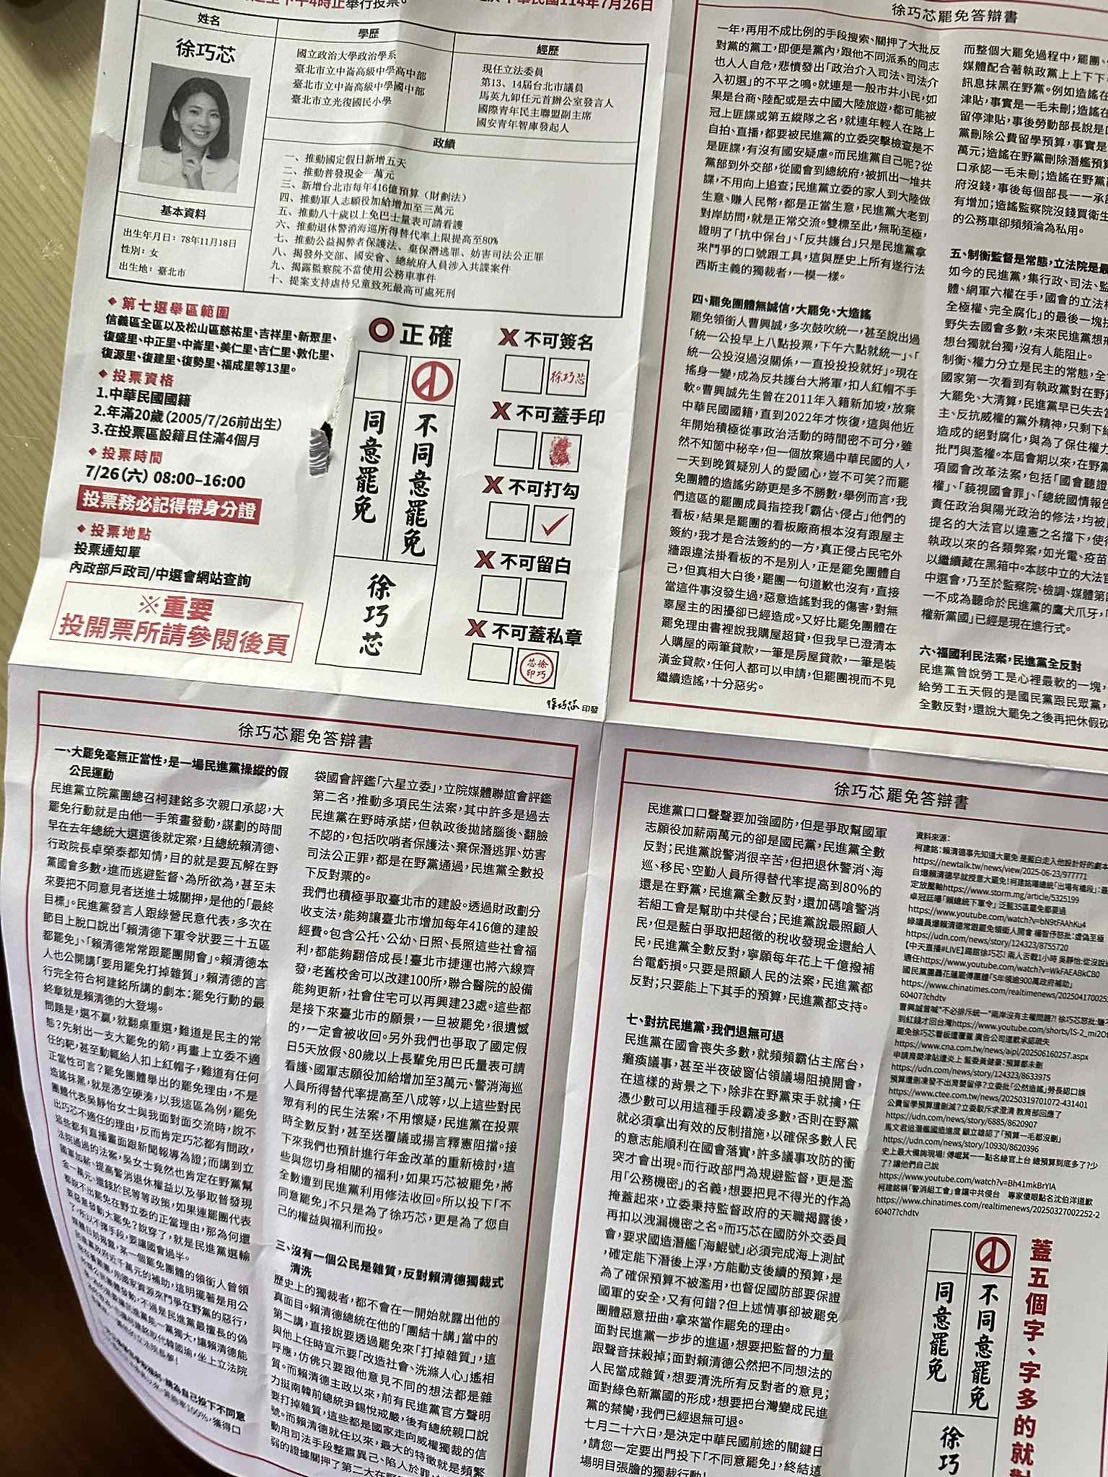 姓名
徐巧芯
學歷
國立政治大學政治學系
臺北市立中崙高級中學高中部
臺北市立中崙高級中學國中部
臺北市立光復國民小學
經歷
現任立法委員
第13、14屆台北市議員
馬英九卸任元首辦公室發言人
國際青年民主聯盟副主席
國安青年智庫發起人
政績
一、推動國定假日新增五天
二、推動普發現金一萬元
三、新增台北市每年416億預算（財劃法）
四、推動軍人志願役加給增加至三萬元
五、推動八十歲以上免巴士量表可請看護
六、推動退休警消海巡所得替代率上限提高至80%
七、推動公益揭弊者保護法、棄保潛逃罪、妨害司法公正罪
八、揭發外交部、國安會、總統府人員涉入共諜案件
九、揭露監察院不當使用公務車事件
十、提案支持虐待兒童致死最高可處死刑
基本資料
出生年月日：78年11月18日
性別：女
出生地：臺北市
◆第七選舉區範圍
信義區全區以及松山區慈祐里、吉祥里、新聚里、
復盛里、中正里、中崙里、美仁里、吉仁里、敦化里、
復源里、復建里、復勢里、福成里等13里。
◆投票資格
1.中華民國國籍
2.年滿20歲(2005/7/26前出生)
3.在投票區設籍且住滿4個月
◆投票時間
7/26(六) 08:00-16:00
投票務必記得帶身分證
◆投票地點
投票通知單
內政部戶政司/中選會網站查詢
※重要
投開票所請參閱後頁
正確
同意罷免
不同意罷免
徐巧芯
X 不可簽名
徐巧芯
X 不可蓋手印
X 不可打勾
X 不可留白
X 不可蓋私章
徐巧芯印
徐巧芯 印發
徐巧芯罷免答辯書
一年，再用不成比例的手段搜索、關押了大批反
對黨的黨工，即便是黨內，跟他不同派系的同志
也人人自危，悲憤發出「政治介入司法、司法介
入初選」的不平之鳴。就連是一般市井小民，如
果是台商、陸配或是去中國大陸旅遊，都可能被
冠上匪諜或第五縱隊之名，就連年輕人在路上
自拍、直播，都要被民進黨的立委突擊檢查是不
是匪諜，有沒有國安疑慮。而民進黨自己呢？從
黨部到外交部，從國會到總統府，被抓出一堆共
諜，不用向上追查；民進黨立委的家人到大陸做
生意、賺人民幣，都是正當生意，民進黨大老到
對岸訪問，就是正常交流。雙標至此，無恥至極，
證明了「抗中保台」、「反共護台」只是民進黨拿
來鬥爭的口號跟工具，這與歷史上所有遂行法
西斯主義的獨裁者，一模一樣。
四、罷免團體無誠信，大罷免、大造謠
罷免領銜人曹興誠，多次鼓吹統一，甚至說出過
「統一公投早上八點投票，下午六點就統一」、「
統一公投沒過沒關係，一直投投就好」。現在
搖身一變，成為反共護台大將軍，扣人紅帽不手
軟。曹興誠先生曾在2011年入籍新加坡，放棄
中華民國國籍，直到2022年才恢復，這與他近
年開始積極從事政治活動的時間密不可分，雖
然不知箇中秘辛，但一個放棄過中華民國的人，
一天到晚質疑別人的愛國心，豈不可笑？而罷
免團體的造謠劣跡更是多不勝數，舉例而言，我
們這區的罷團成員指控我「霸佔、侵占」他們的
看板，結果是罷團的看板廠商根本沒有跟屋主
簽約，我才是合法簽約的一方，真正侵占民宅外
牆跟違法掛看板的不是別人，正是罷免團體自
己，但真相大白後，罷團一句道歉也沒有，直接
當這件事沒發生過，惡意造謠對我的傷害，對無
辜屋主的困擾卻已經造成。又好比罷免團體在
罷免理由書裡說我購屋超貸，但我早已澄清本
人購屋的兩筆貸款，一筆是房屋貸款，一筆是裝
潢金貸款，任何人都可以申請，但罷團視而不見
繼續造謠，十分惡劣。
而整個大罷免過程中，罷團、
媒體配合著執政黨上上下下
訊息抹黑在野黨。例如造謠在
津貼，事實是一毛未刪；造謠在
留停津貼，事後勞動部長說是
黨刪除公費留學預算，事實是
萬元；造謠在野黨刪除潛艦預算
口承認一毛未刪；造謠在野黨
府沒錢，事後每個部長一一承
有增加；造謠監察院沒錢買衛生
的公務車卻頻頻淪為私用。
五、制衡監督是常態，立法院是最
如今的民進黨，集行政、司法、監
體、網軍六權在手，國會的立法
全極權、完全腐化」的最後一塊
野失去國會多數，未來民進黨想
想台獨就台獨，沒有人能阻止。
制衡、權力分立是民主的常態，全
國家第一次看到有執政黨對在野
大罷免、大清算，民進黨早已失去
主、反抗威權的黨外精神，只剩下
造成的絕對腐化，與為了保住權力
批鬥與濫權。本屆會期以來，在野
項國會改革法案，包括「國會聽證
權」、「藐視國會罪」、「總統國情報告
責任政治與陽光政治的修法，均被
提名的大法官以違憲之名擋下，使
執政以來的各類弊案，如光電、疫苗
以繼續藏在黑箱中。本該中立的大法
中選會，乃至於監察院、檢調、媒體第
一不成為聽命於民進黨的鷹犬爪牙，
權新黨國」已經是現在進行式。
六、福國利民法案，民進黨全反對
民進黨曾說勞工是心裡最軟的一塊，
給勞工五天假的是國民黨跟民眾黨，
全數反對，還說大罷免之後再把休假砍
徐巧芯罷免答辯書
一、大罷免毫無正當性，是一場民進黨操縱的假
公民運動
民進黨立院黨團總召柯建銘多次親口承認，大
罷免行動就是由他一手策畫發動，謀劃的時間
早在去年總統大選選後就定案，且總統賴清德、
行政院長卓榮泰都知情，目的就是要瓦解在野
黨國會多數，進而逃避監督、為所欲為，甚至未
來要把不同意見者送進土城關押，是他的「最終
目標」。民進黨發言人跟綠營民意代表，多次在
節目上脫口說出「賴清德下軍令狀要三十五區
都罷免」、「賴清德常常跟罷團開會」。賴清德本
人也公開講「要用罷免打掉雜質」，賴清德的言
行完全符合柯建銘所講的劇本：罷免行動的最
終章就是賴清德的大登場。
問題是，選不贏，就翻桌重選，難道是民主的常
態？先射出一支大罷免的箭，再畫上立委不適
任的靶，甚至動輒給人扣上紅帽子，難道有任何
正當性可言？罷免團體舉出的罷免理由，不是
造謠抹黑，就是憑空硬湊，以我這區為例，罷免
團體代表吳靜怡女士與我面對面交流時，說不
出巧芯不適任的理由，反而肯定巧芯都有問政，
袋國會評鑑「六星立委」，立院媒體聯誼會評鑑
第二名，推動多項民生法案，其中許多是過去
民進黨在野時承諾，但執政後拋諸腦後、翻臉
不認的，包括吹哨者保護法、棄保潛逃罪、妨害
司法公正罪，都是在野黨通過，民進黨全數投
下反對票的。
我們也積極爭取臺北市的建設。透過財政劃分
收支法，能夠讓臺北市增加每年416億的建設
經費。包含公托、公幼、日照、長照這些社會福
利，都能夠翻倍成長！臺北市捷運也將六線齊
發，老舊校舍可以改建100所，聯合醫院的設備
能夠更新，社會住宅可以再興建23處。這些都
是接下來臺北市的願景，一旦被罷免，很遺憾
的，一定會被收回。另外我們也爭取了國定假
日5天放假、80歲以上長輩免用巴氏量表可請
看護、國軍志願役加給增加至3萬元、警消海巡
人員所得替代率提高至八成等，以上這些對民
眾有利的民生法案，不用懷疑，民進黨在投票
時全數反對，甚至送覆議或揚言釋憲阻擋。接
下來我們也預計進行年金改革的重新檢討，這
些與您切身相關的福利，如果巧芯被罷免，將
全數遭到民進黨利用修法收回。所以投下「不
同意罷免」不只是為了徐巧芯，更是為了您自
己的權益與福利而投。
三、沒有一個公民是雜質，反對賴清德獨裁式
清洗
歷史上的獨裁者，都不會在一開始就露出他的
真面目。賴清德總統在他的「團結十講」當中的
第二講，直接說要透過罷免來「打掉雜質」，這
與他上任時宣示要「改造社會、洗滌人心」遙相
呼應，仿佛只要跟他意見不同的想法都是雜
質。而賴清德主政以來，前有民進黨官方聲明
力挺南韓前總統尹錫悅戒嚴，後有總統親口說
要打掉雜質，這些都是國家走向威權獨裁的信
號。而賴清德就任以來，最大的特徵就是頻繁
動用司法手段整肅異己、陷人於罪
弱的證據關押了第二大在野
徐巧芯罷免答辯書
民進黨口口聲聲要加強國防，但是爭取幫國軍
志願役加薪兩萬元的卻是國民黨，民進黨全數
反對；民進黨說警消很辛苦，但把退休警消、海
巡、移民、空勤人員所得替代率提高到80%的
還是在野黨，民進黨全數反對，還加碼嗆警消
若組工會是幫助中共侵台；民進黨說最照顧人
民，但是藍白爭取把超徵的稅收發現金還給人
民，民進黨全數反對，寧願每年花上千億撥補
台電虧損。只要是照顧人民的法案，民進黨都
反對；只要能上下其手的預算，民進黨都支持。
七、對抗民進黨，我們退無可退
民進黨在國會喪失多數，就頻頻霸佔主席台，
癱瘓議事，甚至半夜破窗佔領議場阻撓開會，
在這樣的背景之下，除非在野黨束手就擒，任
憑少數可以用這種手段霸凌多數，否則在野黨
就必須拿出有效的反制措施，以確保多數人民
的意志能順利在國會落實，許多議事攻防的衝
突才會出現。而行政部門為規避監督，更是濫
用「公務機密」的名義，想要把見不得光的作為
掩蓋起來，立委秉持監督政府的天職揭露後，
再扣以洩漏機密之名。而巧芯在國防外交委員
會，要求國造潛艦「海鯤號」必須完成海上測試
，確定能下潛後上浮，方能動支後續的預算，是
為了確保預算不被濫用，也督促國防部要保證
國軍的安全，又有何錯？但上述情事卻被罷免
團體惡意扭曲，拿來當作罷免的理由。
面對民進黨一步步的進逼，想要把監督的力量
跟聲音抹殺掉；面對賴清德公然把不同想法的
人民當成雜質，想要清洗所有反對者的意見；
面對綠色新黨國的形成，想要把台灣變成民進
黨的禁臠，我們已經退無可退。
七月二十六日，是決定中華民國前途的關鍵日
，請您一定要出門投下「不同意罷免」，終結這
場明目張膽的獨裁行動！
資料來源：
柯建銘：賴清德事先知道大罷免 是藍白走入他設計好的劇本
https://newtalk.tw/news/view/2025-06-23/977771
定放壓軸https://www.storm.mg/article/5325199
https://www.youtube.com/watch?v=bN9tFAAhKu4
https://udn.com/news/story/124323/8755720
適任https://www.youtube.com/watch?v=WkFAEABkCB0
國民黨團轟花蓮罷傅團體「5年領逾900萬政府補助」
https://www.chinatimes.com/realtimenews/202504170025
60407?chdtv
罷免徐巧芯看板遭覆蓋 廣告公司道歉承認疏失
https://www.cna.com.tw/news/aipl/202506160257.aspx
https://udn.com/news/story/124323/8633975
https://www.ctee.com.tw/news/20250319701072-431401
公費留學預算遭刪減？立委駁斥求澄清 教育部回應了
https://udn.com/news/story/6885/8620907
https://udn.com/news/story/10930/8620396
了？讓他們自己說
https://www.youtube.com/watch?v=Bh41mkBrYIA
https://www.chinatimes.com/realtimenews/20250327002252-2
60407?chdtv
同意罷免
不同意罷免
徐巧
蓋五個字、字多的就